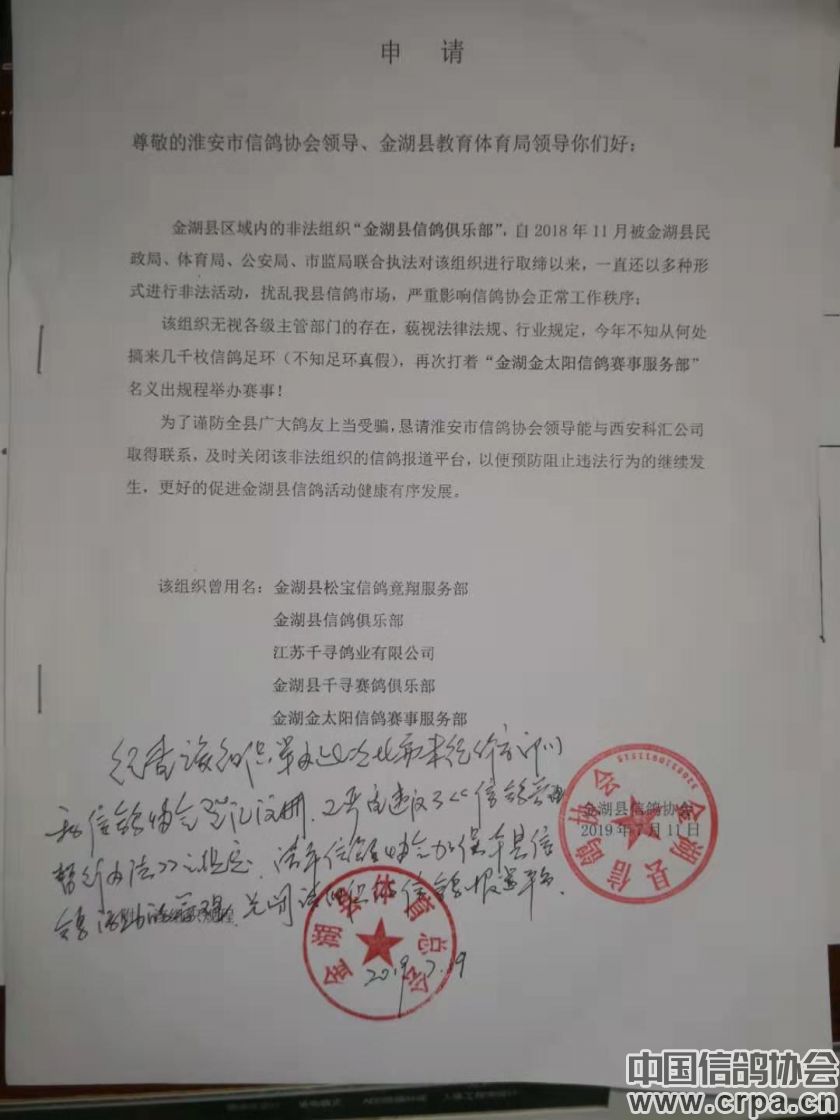 申 请
尊敬的淮安市信鸽协会领导、金湖县教育体育局领导你们好：
金湖县区域内的非法组织“金湖县信鸽俱乐部”，自 2018 年 11 月被金湖县民
政局、体育局、公安局、市监局联合执法对该组织进行取缔以来，一直还以多种形
式进行非法活动，扰乱我县信鸽市场，严重影响信鸽协会正常工作秩序；
该组织无视各级主管部门的存在，藐视法律法规、行业规定，今年不知从何处
搞来几千枚信鸽足环（不知足环真假），再次打着“金湖金太阳信鸽赛事服务部”
名义出规程举办赛事！
为了谨防全县广大鸽友上当受骗，恳请淮安市信鸽协会领导能与西安科汇公司
取得联系，及时关闭该非法组织的信鸽报道平台，以便预防阻止违法行为的继续发
生，更好的促进金湖县信鸽活动健康有序发展。
该组织曾用名：金湖县松宝信鸽竞翔服务部
金湖县信鸽俱乐部
江苏千寻鸽业有限公司
金湖县千寻赛鸽俱乐部
金湖金太阳信鸽赛事服务部
经查该组织举办
和信鸽协会登记注册，严重违反了《信鸽管理
暂行办法》之规定，请市信鸽协会加强本县信
关闭该组织信鸽报道平台。
金湖县信鸽协会
2019 年 7 月 11 日
金湖县信鸽协会
金湖县体育总会
2019.7.19
中国信鸽协会
www.crpa.cn